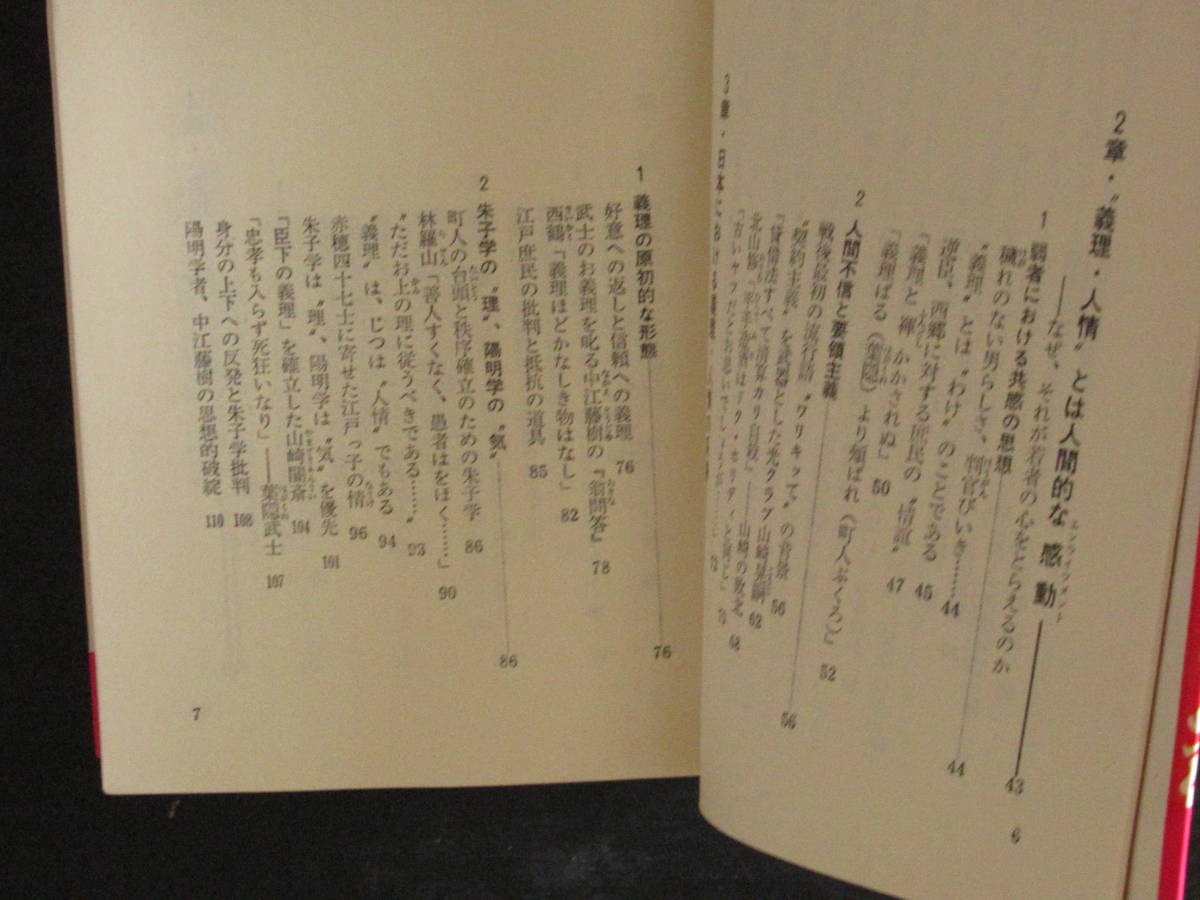 2章・〝義理・人情〟とは人間的な感動 43
エンライトメント
――なぜ、それが若者の心をとらえるのか
1 弱者における共感の思想 44
穢れのない男らしさ、判官びいき…… 44
〝義理〟とは〝わけ〟のことである 45
逆臣、西郷に対する庶民の〝情誼〟 47
「義理と褌 かかされぬ」 50
「義理ばる（葉隠）より頬ばれ（町人ぶくろ）」 52
2 人間不信と要領主義 56
戦後最初の流行語〝ワリキッて〟の背景 56
〝契約主義〟を武器とした光クラブ山崎晃嗣 62
「貸借法すべて清算カリ自殺」――山崎の敗北 68
3章・日本における
1 義理の原初的な形態 76
好意への返しと信頼への義理 76
武士のお義理を叱る中江藤樹の『翁問答』 78
西鶴『義理ほどかなしき物はなし』 82
江戸庶民の批判と抵抗の道具 85
2 朱子学の〝理〟、陽明学の〝気〟 86
町人の台頭と秩序確立のための朱子学 86
林羅山「善人すくなく、愚者はをほく……」 90
〝ただお上の理に従うべきである……〟 93
〝義理〟は、じつは〝人情〟でもある 94
赤穂四十七士に寄せた江戸っ子の情 96
朱子学は〝理〟、陽明学は〝気〟を優先 101
『臣下の義理』を確立した山崎闇斎 104
「忠孝も入らず死狂いなり」――葉隠武士 107
身分の上下への反発と朱子学批判 108
陽明学者、中江藤樹の思想的破綻 110
6
7